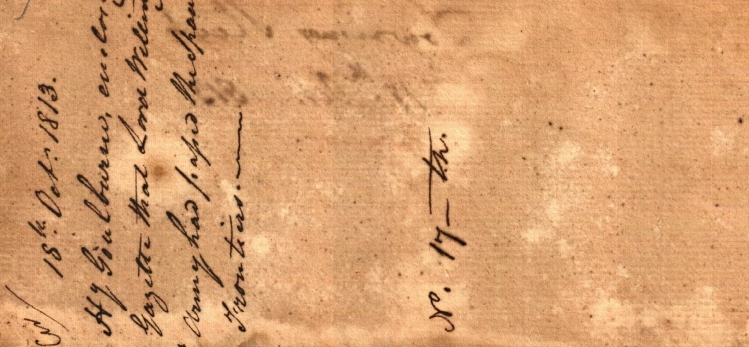 18th Octr. 1813.
Hy Goulburn, enclos
Gazette that Lord Wellin
Army had passed the Span
Frontiers.—
No. 17—th.